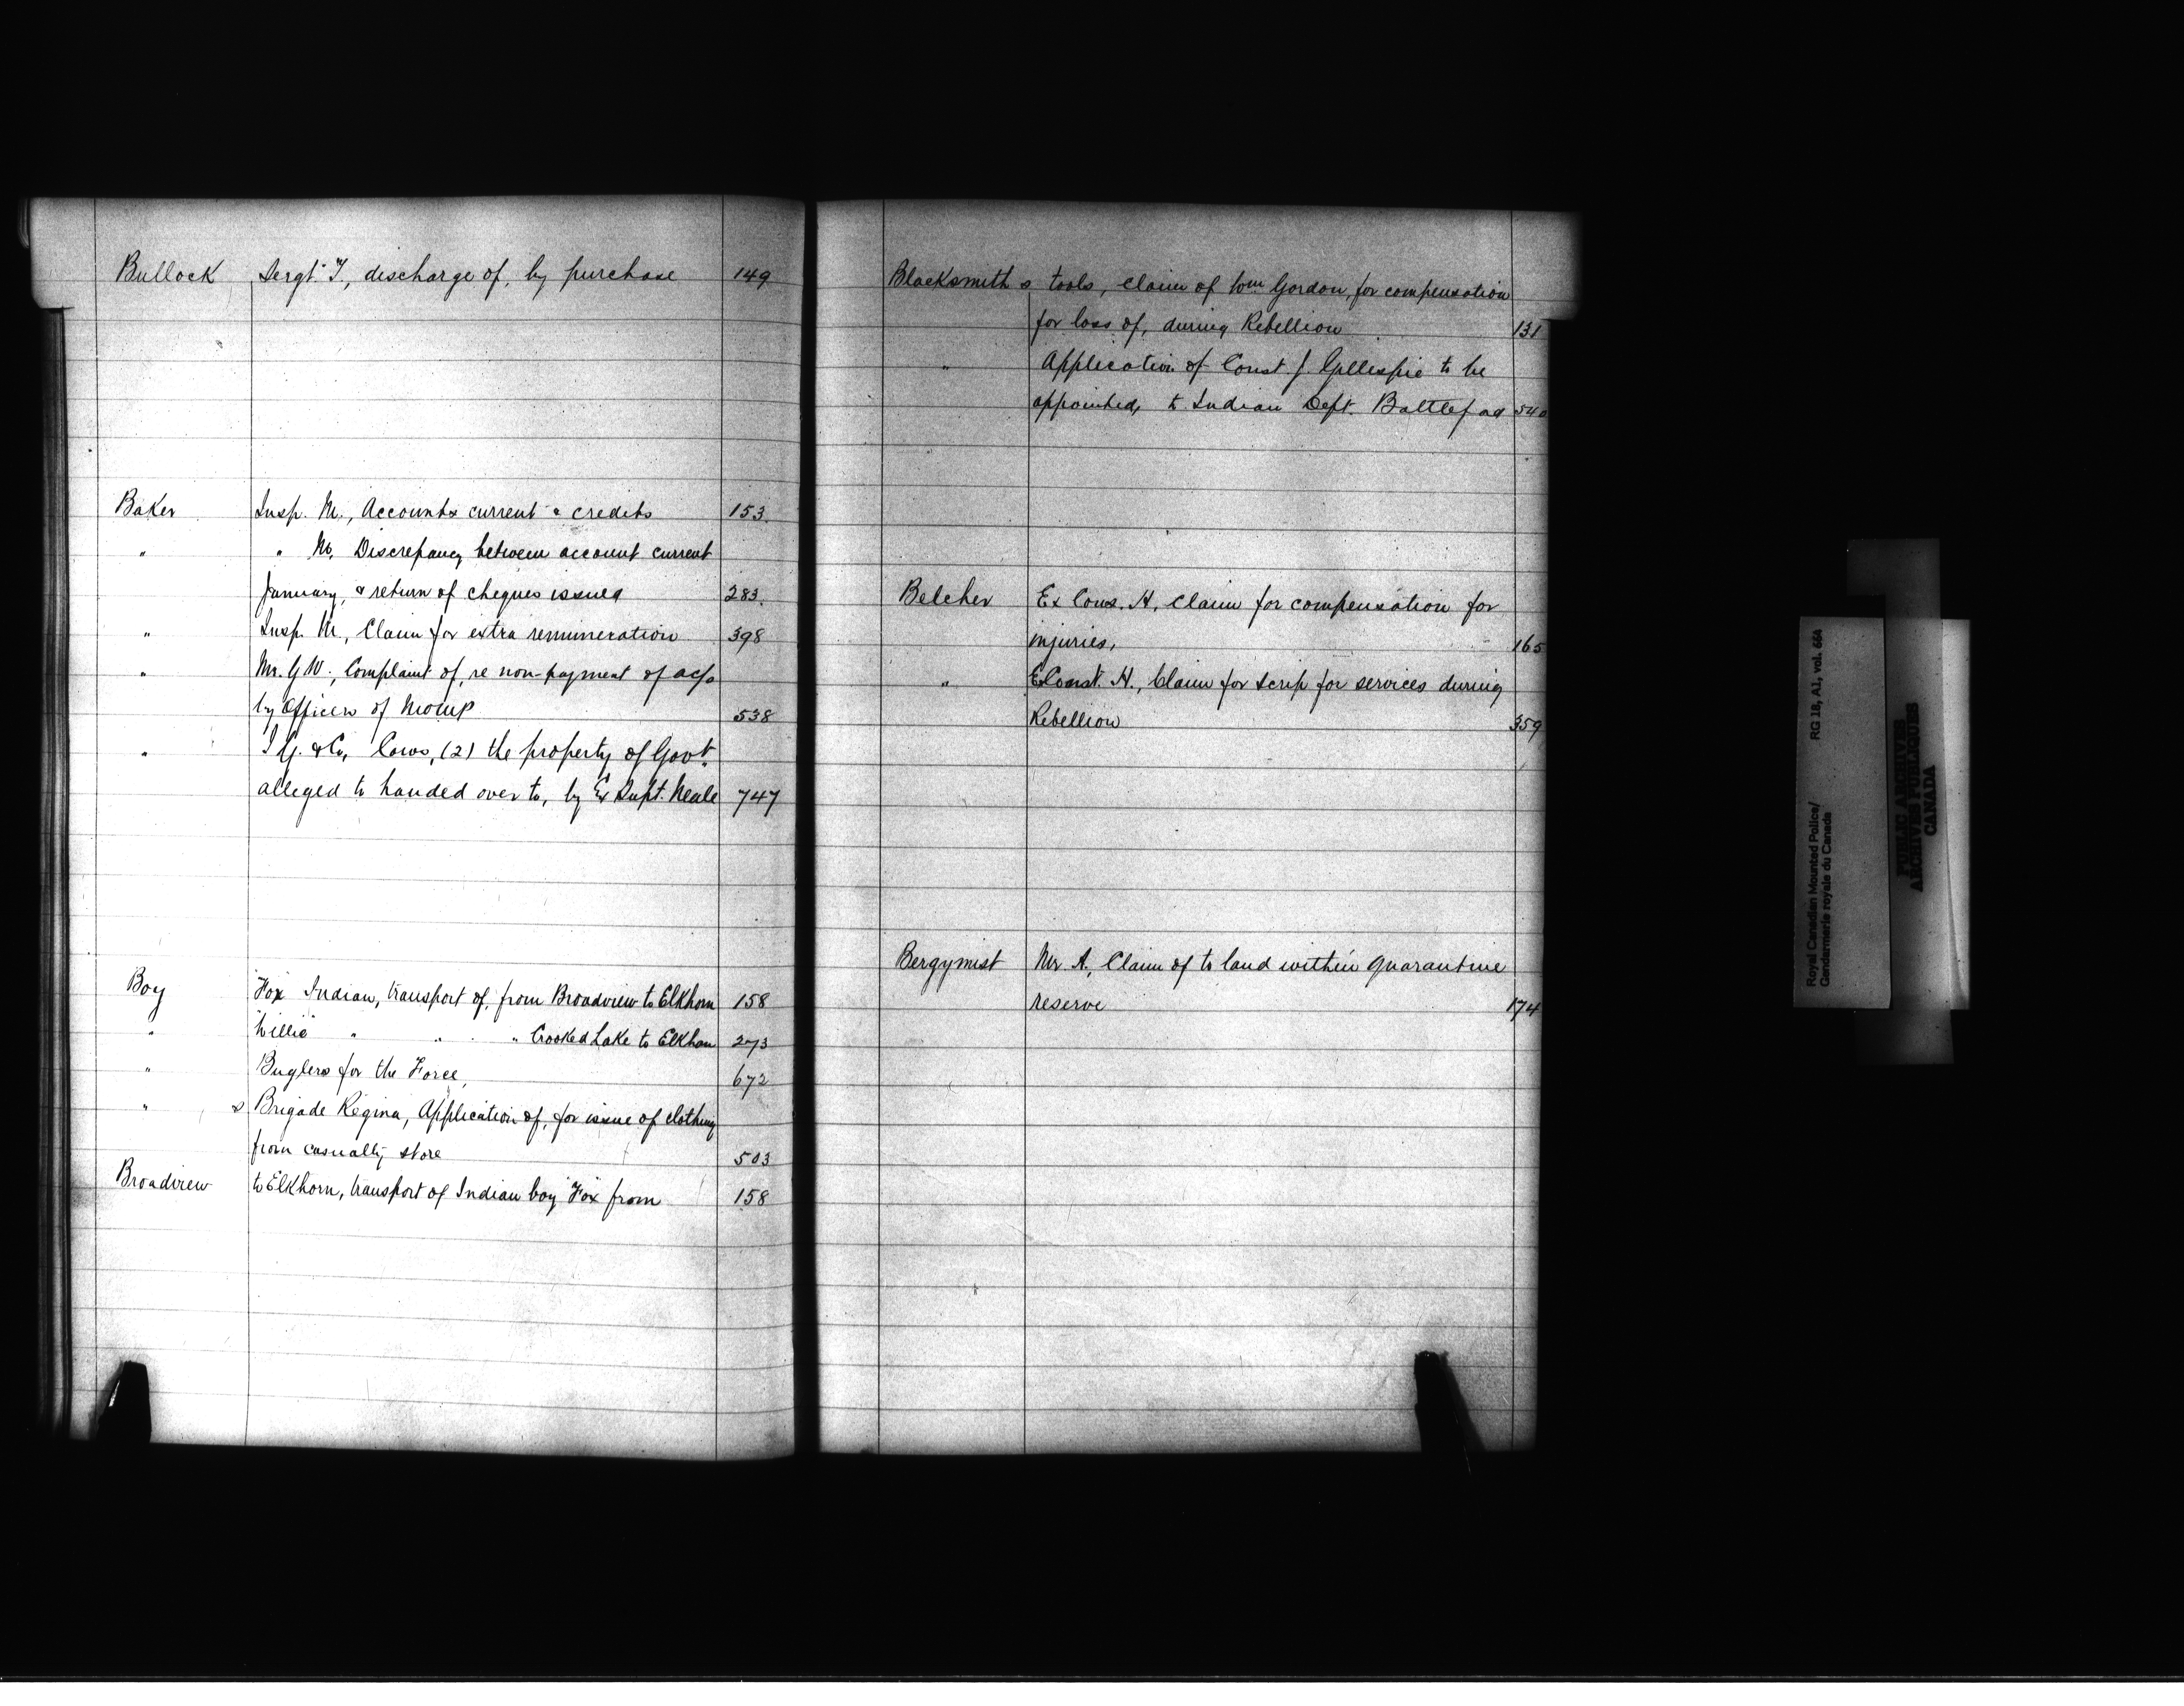 Bullock Sergt. T., discharge of, by purchase 149
Baker Insp. M., Accounts current & credits 153.
" " M. Discrepancy between account current
January, & return of cheques issued 283.
" Insp. M., Claim for extra remuneration 398
" Mr. G W., Complaint of, re non-payment of a/cs
by Officers of NWMP 538
" I G. & Co, Cows, (2) the property of Govt.
alleged to handed over to, by Ex Supt. Neale 747
Boy "Fox" Indian, transport of, from Broadview to Elkhorn 158
" "Willie" " " " Crooked Lake to Elkhorn 273
" Buglers for the Force, 672
" s Brigade Regina, Application of, for issue of clothing
from casualty store 503
Broadview to Elkhorn, transport of Indian boy "Fox" from 158
Blacksmith s tools, claim of Wm Gordon, for compensation
for loss of, during Rebellion 131
" Application of Const. J. Gillespie to be
appointed, to Indian Dept. Battleford 540
Belcher Ex Cons. H. Claim for compensation for
injuries, 165
" Ex Const. H., Claim for scrip for services during
Rebellion 359
Bergymist Mr A., Claim of to land within quarantine
reserve 174
Royal Canadian Mounted Police/
Gendarmerie royale du Canada
RG 18, A1, vol. 664
PUBLIC ARCHIVES
ARCHIVES PUBLIQUES
CANADA